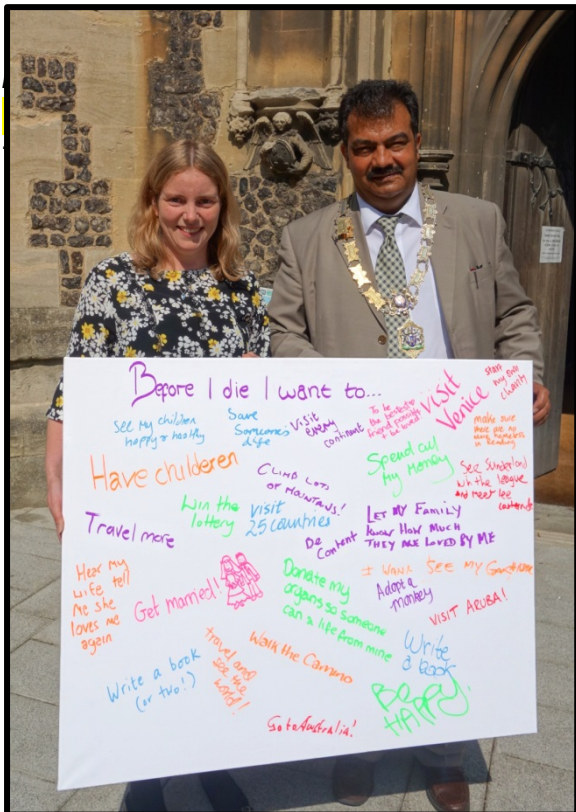 Before I die I want to...
See my children
happy & healthy
Save
Someones
life
Visit
every
continent
To be
the bestest
friend possible
& be loved
Visit
Venice
start
my own
charity
make sure
there are no
young homeless
in Reading
Have childeren
Climb lots
of mountains!
Spend all
My Money
See Sunderland
win the league
and meet lee
Travel more
Win the
lottery
visit
25 countries
Be
Content
Let my family
know how much
they are loved by me
Hear my
wife tell
me she
loves me
again
Get married!
Donate my
organs so someone
can a life from mine
I want see my
Adopt a
monkey
Visit Aruba!
Write a book
(or two!)
travel and
see the
world!
Walk the Camino
Write
a book
Be
Happy!
Go to Australia!